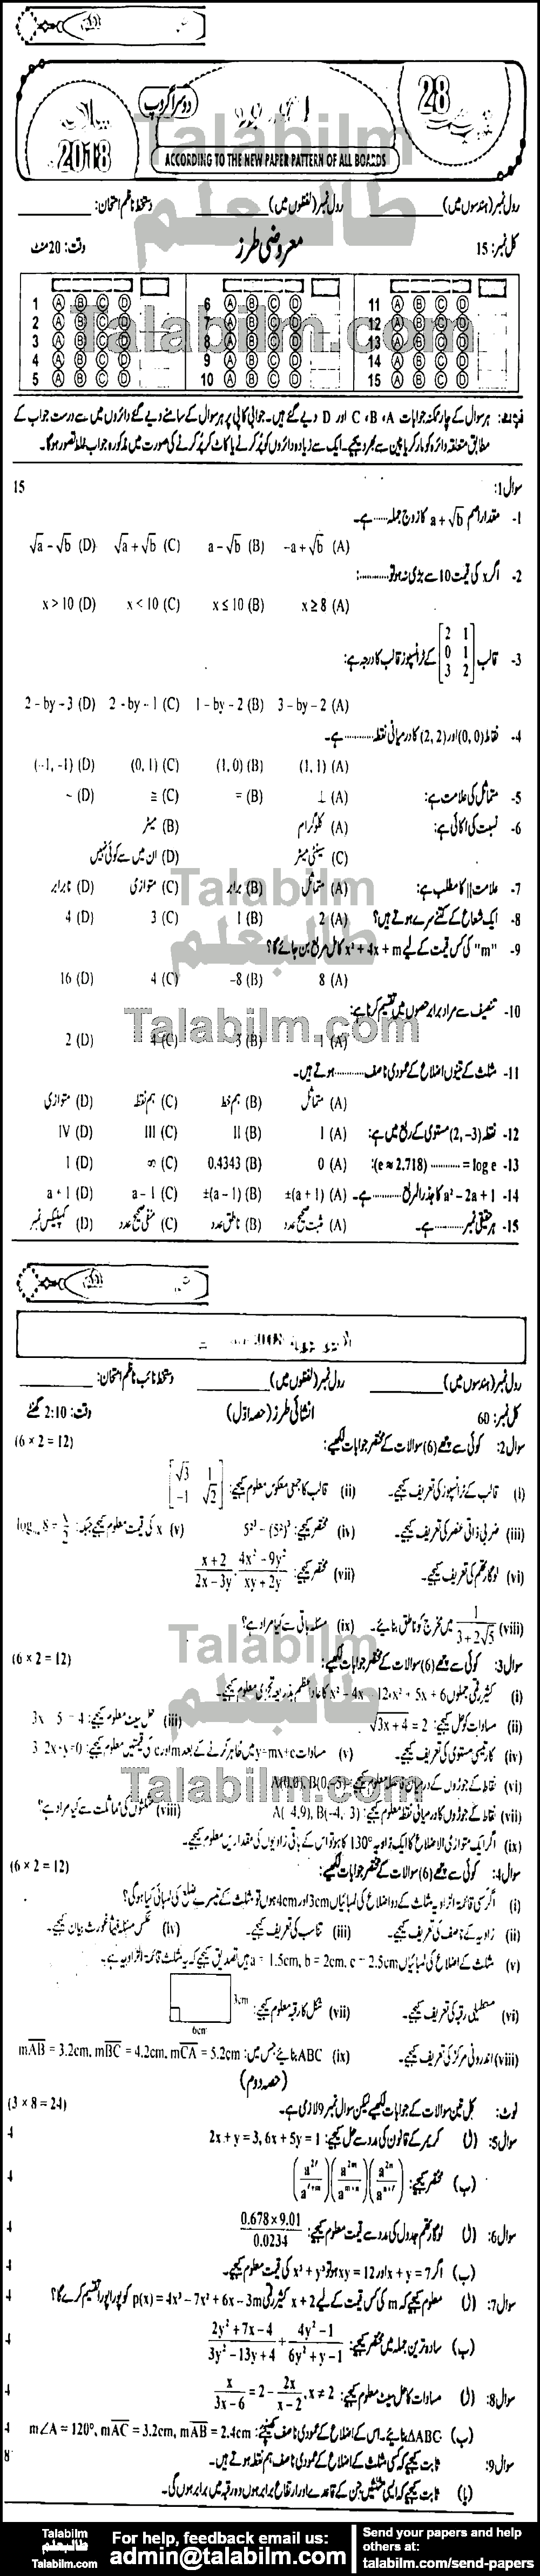 28
دوسرا گروپ
2018
ACCORDING TO THE NEW PAPER PATTERN OF ALL BOARDS
Talabilm
طالبعلم
رول نمبر (ہندسوں میں) ________ رول نمبر (لفظوں میں) ________ دستخط ناظم امتحان: ________
کل نمبر: 15 معروضی طرز وقت: 20 منٹ
1 A B C D 6 A B C D 11 A B C D
2 A B C D 7 A B C D 12 A B C D
3 A B C D 8 A B C D 13 A B C D
4 A B C D 9 A B C D 14 A B C D
5 A B C D 10 A B C D 15 A B C D
Talabilm.com
نوٹ: ہر سوال کے چار ممکنہ جوابات A، B، C اور D دیے گئے ہیں۔ جوابی کاپی پر ہر سوال کے سامنے دیے گئے دائروں میں سے درست جواب کے
مطابق متعلقہ دائرہ کو مارکر یا پین سے بھر دیجیے۔ ایک سے زیادہ دائروں کو پُر کرنے یا کاٹ کر پُر کرنے کی صورت میں مذکورہ جواب غلط تصور ہوگا۔
سوال 1: 15
1- مقدار اصم a + √b کا زوج جملہ ...... ہے۔
(A) -a + √b (B) a - √b (C) √a + √b (D) √a - √b
2- اگر x کی قیمت 10 سے بڑی نہ ہو تو ............:
(A) x ≥ 8 (B) x ≤ 10 (C) x < 10 (D) x > 10
3- قالب [2 1; 0 1; 3 2] کے ٹرانسپوز قالب کا درجہ ہے:
(A) 3 - by - 2 (B) 1 - by - 2 (C) 2 - by - 1 (D) 2 - by - 3
4- نقاط (0, 0) اور (2, 2) کا درمیانی نقطہ ............ ہے۔
(A) (1, 1) (B) (1, 0) (C) (0, 1) (D) (-1, -1)
5- متماثل کی علامت ہے: (A) ⊥ (B) = (C) ≅ (D) ~
6- نسبت کی اکائی ہے: (A) کلوگرام (B) میٹر
(C) سینٹی میٹر (D) ان میں سے کوئی نہیں
7- علامت || کا مطلب ہے: (A) متماثل (B) برابر (C) متوازی (D) نابرابر
8- ایک شعاع کے کتنے سرے ہوتے ہیں؟ (A) 2 (B) 1 (C) 3 (D) 4
9- "m" کی کس قیمت کے لیے x² + 4x + m کامل مربع بن جائے گا؟
(A) 8 (B) -8 (C) 4 (D) 16
10- تنصیف سے مراد برابر حصوں میں تقسیم کرنا ہے:
(A) 1 (B) 3 (C) 4 (D) 2
11- مثلث کے تینوں اضلاع کے عمودی ناصف ............ ہوتے ہیں۔
(A) متماثل (B) ہم خط (C) ہم نقطہ (D) متوازی
12- نقطہ (2, -3) مستوی کے ربع میں ہے: (A) I (B) II (C) III (D) IV
13- log e = ............ (e ≈ 2.718): (A) 0 (B) 0.4343 (C) ∞ (D) 1
14- a² - 2a + 1 کا جذر المربع ............ ہے۔ (A) ±(a + 1) (B) ±(a - 1) (C) a - 1 (D) a + 1
15- ہر حقیقی نمبر ............ ہے۔ (A) مثبت صحیح عدد (B) ناطق عدد (C) منفی صحیح عدد (D) کمپلیکس نمبر
رول نمبر (ہندسوں میں) ________ رول نمبر (لفظوں میں) ________ دستخط نائب ناظم امتحان: ________
کل نمبر: 60 انشائی طرز (حصہ اول) وقت: 2:10 گھنٹے
سوال 2: کوئی سے چھے (6) سوالات کے مختصر جوابات لکھیے: (6 × 2 = 12)
(i) قالب کے ٹرانسپوز کی تعریف کیجیے۔ (ii) قالب کا جمعی معکوس معلوم کیجیے: [√3 1; -1 √2]
(iii) ضربی ذاتی عنصر کی تعریف کیجیے۔ (iv) مختصر کیجیے: 5^2³ ÷ (5²)³ (v) x کی قیمت معلوم کیجیے جبکہ:
(vi) لوگارتھم کی تعریف کیجیے۔ (vii) مختصر کیجیے: (x + 2)/(2x - 3y) · (4x² - 9y²)/(xy + 2y)
(viii) 1/(3 + 2√5) میں مخرج کو ناطق بنائیے۔ (ix) مسئلہ باقی سے کیا مراد ہے؟
سوال 3: کوئی سے چھے (6) سوالات کے مختصر جوابات لکھیے: (6 × 2 = 12)
(i) کثیر رقمی جملوں x² - 4x - 12، x² + 5x + 6 کا عاد اعظم بذریعہ تجزی معلوم کیجیے۔
(ii) مساوات کو حل کیجیے: √(3x + 4) = 2 (iii) حل سیٹ معلوم کیجیے:
(iv) کارتیسی مستوی کی تعریف کیجیے۔ (v) مساوات y = mx + c میں ظاہر کرنے کے بعد m اور c کی قیمتیں معلوم کیجیے:
(vi) نقاط کے جوڑوں کے درمیان فاصلہ معلوم کیجیے: A(0,0), B(0,-5)
(vii) نقاط کے جوڑوں کا درمیانی نقطہ معلوم کیجیے: (viii) مثلثوں کی مماثلت سے کیا مراد ہے؟
(ix) اگر ایک متوازی الاضلاع کا ایک زاویہ 130° کا ہو تو اس کے باقی زاویوں کی مقداریں معلوم کیجیے۔
سوال 4: کوئی سے چھے (6) سوالات کے مختصر جوابات لکھیے: (6 × 2 = 12)
(i) اگر کسی قائمۃ الزاویہ مثلث کے دو اضلاع کی لمبائیاں 3cm اور 4cm ہوں تو مثلث کے تیسرے ضلع کی لمبائی کیا ہوگی؟
(ii) زاویہ کے ناصف کی تعریف کیجیے۔ (iii) تناسب کی تعریف کیجیے۔ (iv) عکس مسئلہ فیثاغورث بیان کیجیے۔
(v) مثلث کے اضلاع کی لمبائیاں a = 1.5cm, b = 2cm, c = 2.5cm ہیں تصدیق کیجیے کہ یہ مثلث قائمۃ الزاویہ ہے۔
(vi) مستطیلی رقبہ کی تعریف کیجیے۔ (vii) شکل کا رقبہ معلوم کیجیے: 3cm 6cm
(viii) اندرونی مرکز کی تعریف کیجیے۔ (ix) ABC بنائیے جس میں: mAB = 3.2cm, mBC = 4.2cm, mCA = 5.2cm
(حصہ دوم)
نوٹ: کل تین سوالات کے جوابات لکھیے لیکن سوال نمبر 9 لازمی ہے۔ (3 × 8 = 24)
سوال 5: (ا) کریمر کے قانون کی مدد سے حل کیجیے: 2x + y = 3, 6x + 5y = 1 4
(ب) مختصر کیجیے: 4
سوال 6: (ا) لوگارتھم جدول کی مدد سے قیمت معلوم کیجیے: (0.678 × 9.01)/0.0234 4
(ب) اگر x + y = 7 اور xy = 12 ہو تو x³ + y³ کی قیمت معلوم کیجیے۔ 4
سوال 7: (ا) معلوم کیجیے کہ m کی کس قیمت کے لیے x + 2 کثیر رقمی p(x) = 4x³ - 7x² + 6x - 3m کو پورا پورا تقسیم کرے گا؟ 4
(ب) سادہ ترین جملہ میں مختصر کیجیے: (2y² + 7y - 4)/(3y² - 13y + 4) ÷ (4y² - 1)/(6y² + y - 1) 4
سوال 8: (ا) مساوات کا حل سیٹ معلوم کیجیے: x/(3x - 6) = 2 - 2x/(x - 2), x ≠ 2 4
(ب) ΔABC بنائیے۔ اس کے اضلاع کے عمودی ناصف کھینچیے: m∠A = 120°, mAC = 3.2cm, mAB = 2.4cm 4
سوال 9: ثابت کیجیے کہ کسی مثلث کے اضلاع کے عمودی ناصف ہم نقطہ ہوتے ہیں۔ 8
(یا) ثابت کیجیے کہ ایسی مثلثیں جن کے قاعدے اور ارتفاع برابر ہوں وہ رقبہ میں برابر ہوں گی۔
Talabilm
طالبعلم
Talabilm.com
For help, feedback email us:
admin@talabilm.com
Send your papers and help others at:
talabilm.com/send-papers